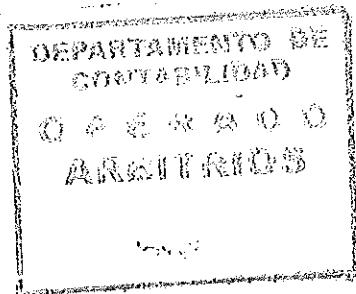 DEPARTAMENTO DE
CONTABILIDAD
OPERADO
ARBITRIOS